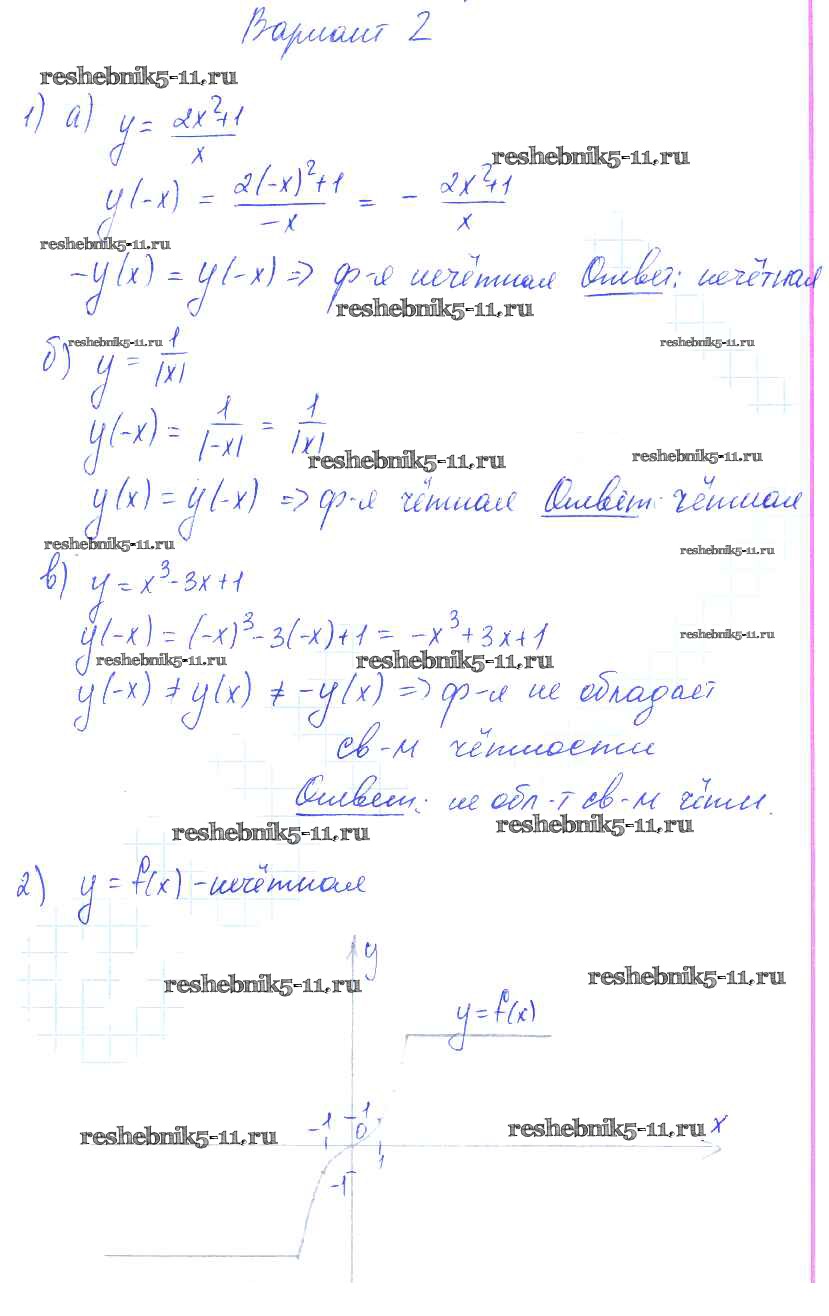 Вариант 2
reshebnik5-11.ru
1) а) y = (2x²+1)/x
reshebnik5-11.ru
y(-x) = (2(-x)²+1)/(-x) = - (2x²+1)/x
reshebnik5-11.ru
-y(x) = y(-x) => ф-я нечётная Ответ: нечётная
reshebnik5-11.ru
reshebnik5-11.ru
reshebnik5-11.ru
б) y = 1/|x|
y(-x) = 1/|-x| = 1/|x|
reshebnik5-11.ru
reshebnik5-11.ru
y(x) = y(-x) => ф-я чётная Ответ: чётная
reshebnik5-11.ru
reshebnik5-11.ru
в) y = x³-3x+1
y(-x) = (-x)³-3(-x)+1 = -x³+3x+1
reshebnik5-11.ru
reshebnik5-11.ru
reshebnik5-11.ru
y(-x) ≠ y(x) ≠ -y(x) => ф-я не обладает
св-м чётности
Ответ: не обл-т св-м чётн.
reshebnik5-11.ru
reshebnik5-11.ru
2) y = f(x) - нечётная
y
reshebnik5-11.ru
reshebnik5-11.ru
y = f(x)
-1 1
0
reshebnik5-11.ru
reshebnik5-11.ru
x
1
-1